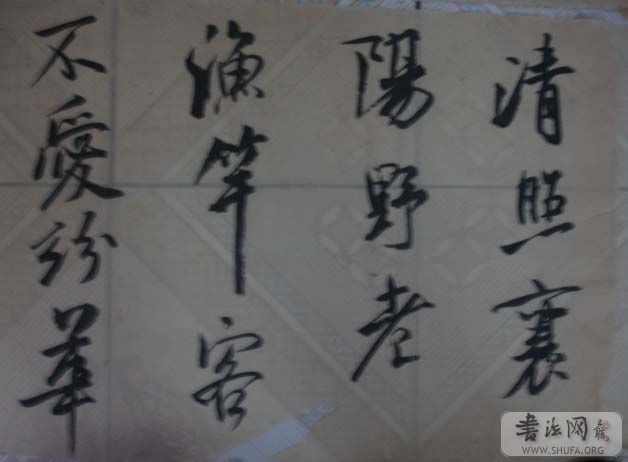 清照襄
陽野老
漁竿客
不愛紛華
書法网
WWW.SHUFA.ORG